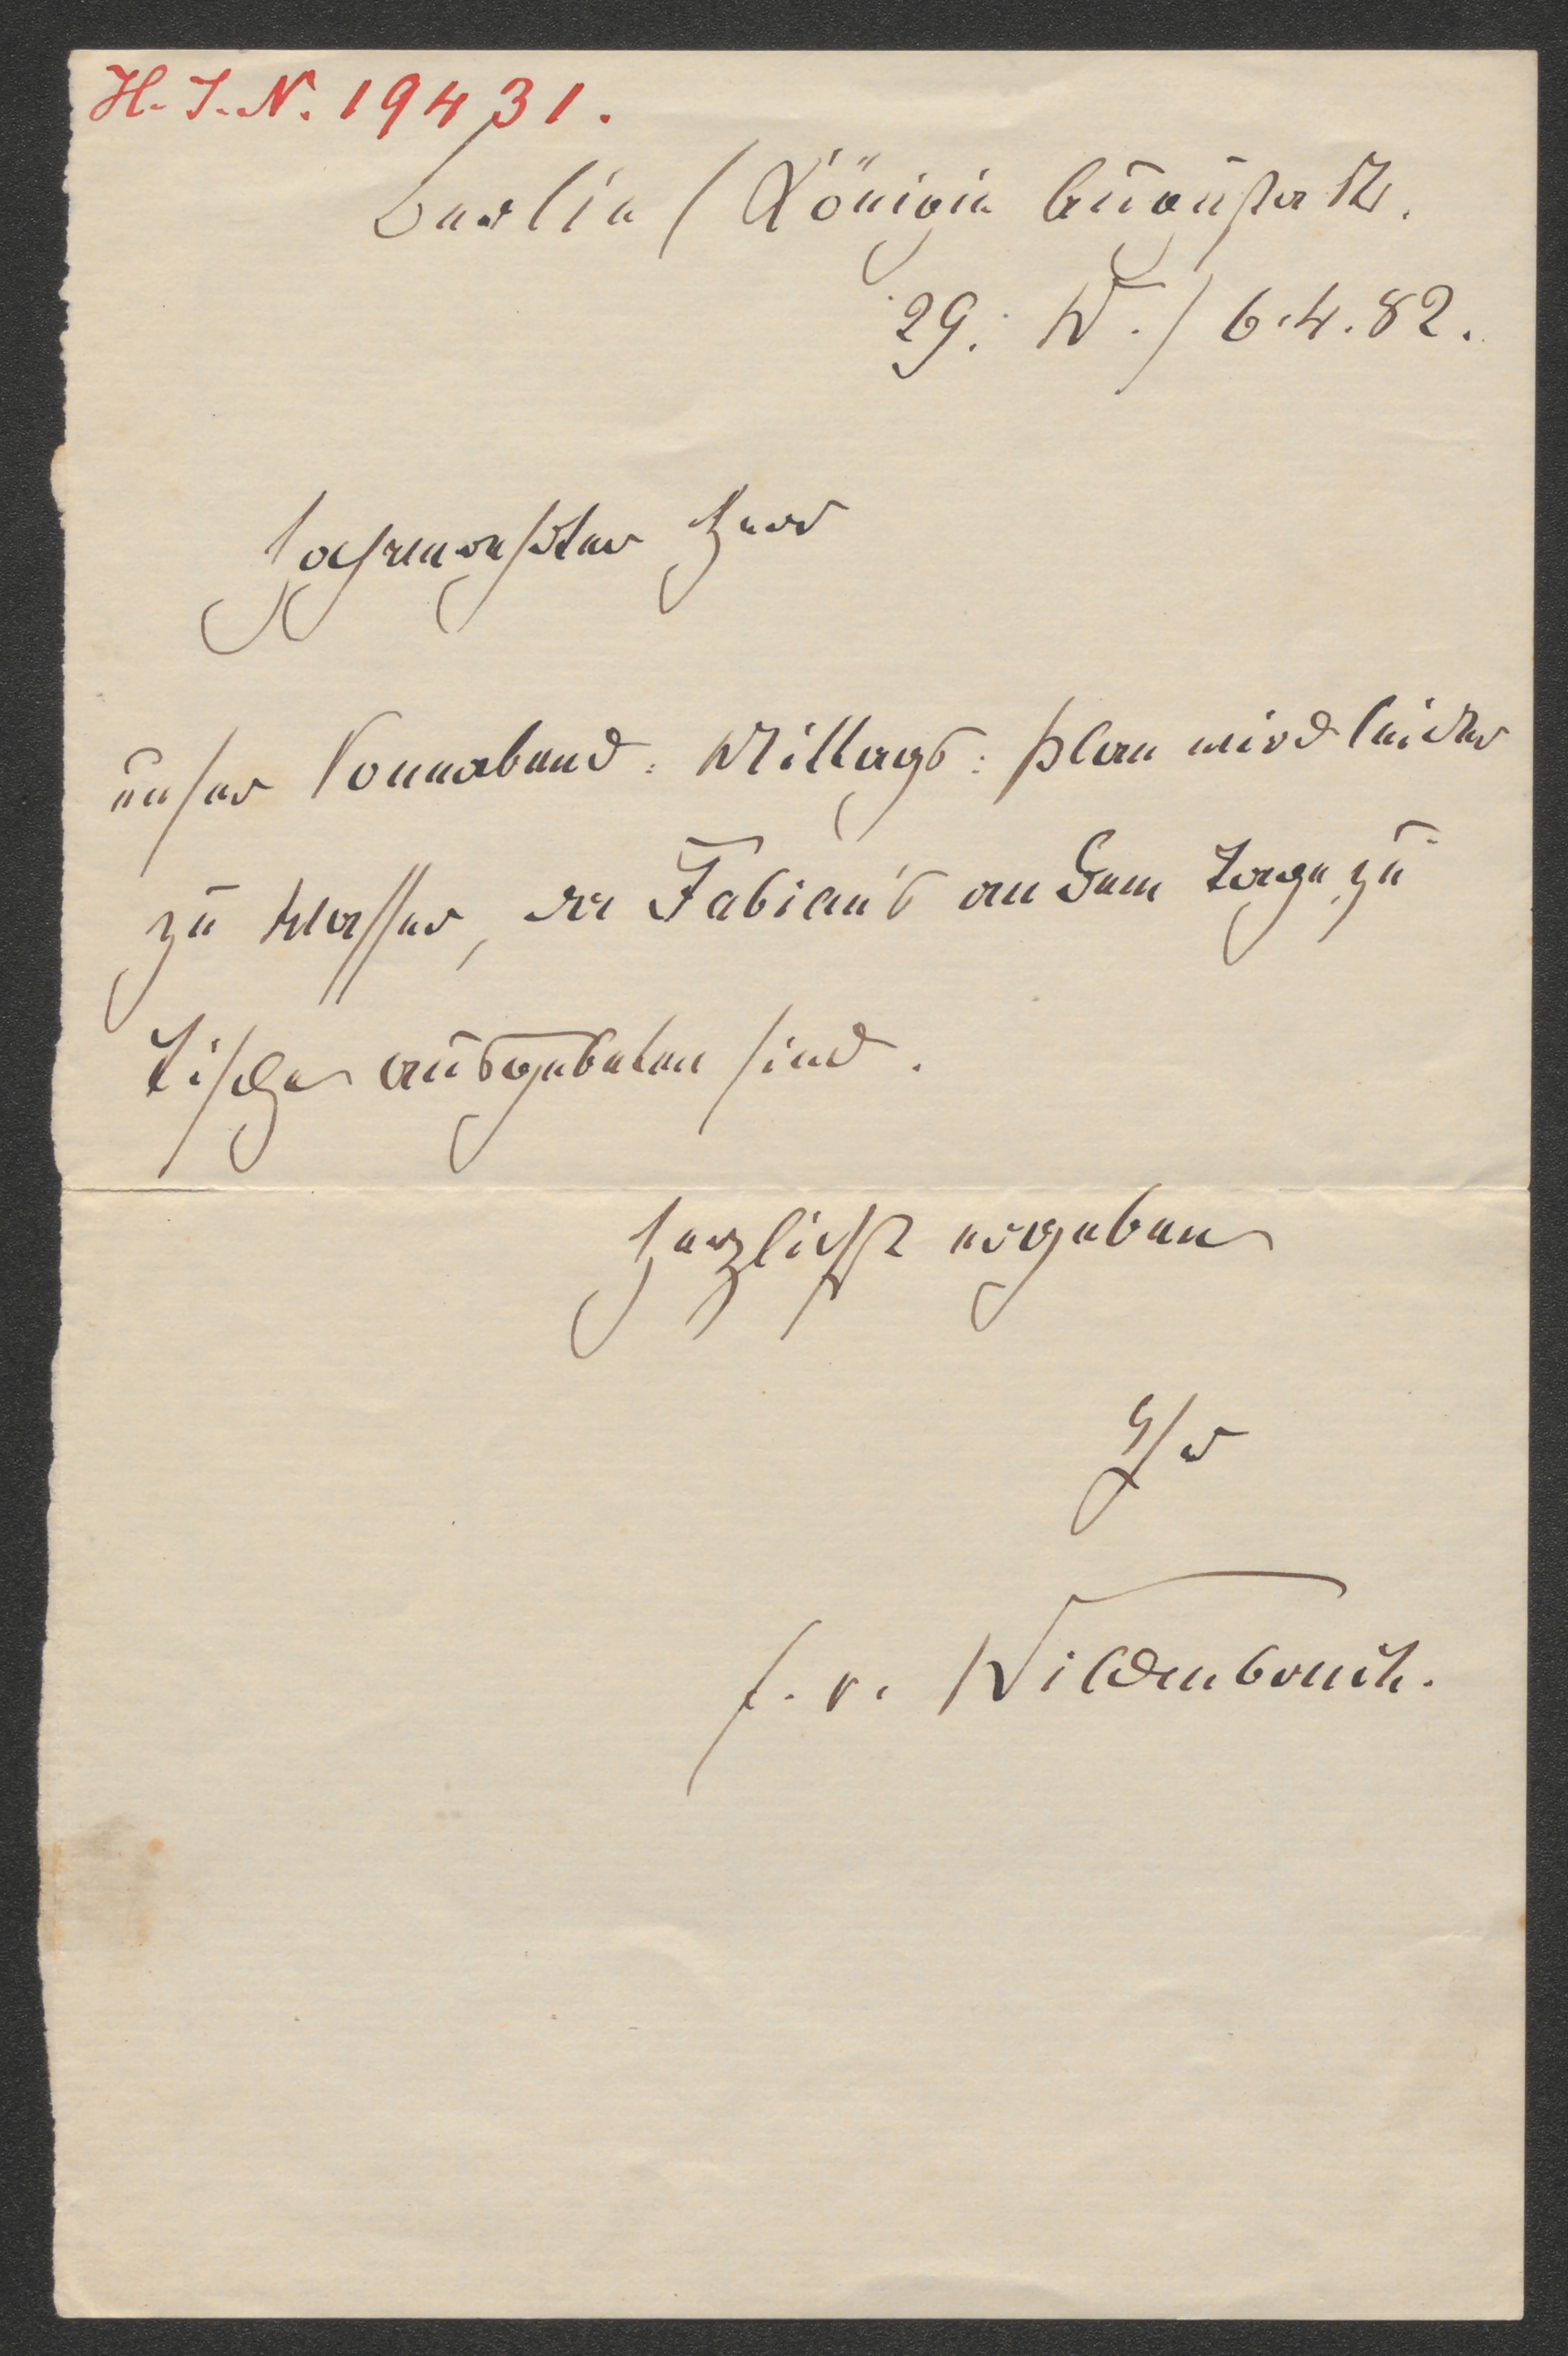 H. I. N. 19431.
Berlin (Königin Augusta Str.
29. W.) 6.4.82.
Hochverehrter Herr
unser Sonnabend-Mittags-Plan wird leider
zu Wasser, da Fabian's an dem Tage zu
Tische ausgebeten sind.
Herzlichst ergeben
Ihr
E. v. Wildenbruch.